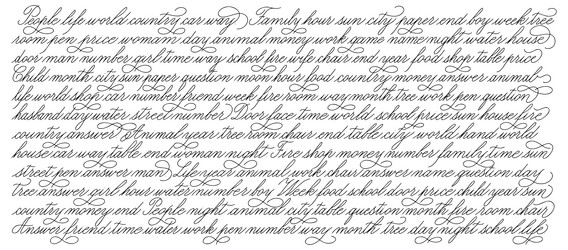 People life world country car way Family hour sun city paper end boy week tree
room pen price woman e day animal money work game name night water house
door man number girl time way school fire wife chair end year food shop table price
Child month city sun paper question moon hour food country money answer animal
life world shop car number friend week fire room way month tree work pen question
husband day water street number Door face time world school price sun house fire
country answer Animal year tree room chair end table city world hand world
house car way table end woman night Fire shop money number family time sun
street pen answer man Life year animal work chair answer name question day
tree answer girl hour water number boy Week food school door price child year sun
country money end People night animal city table question month fire room chair
Answer friend time water work pen number way month tree day night school life